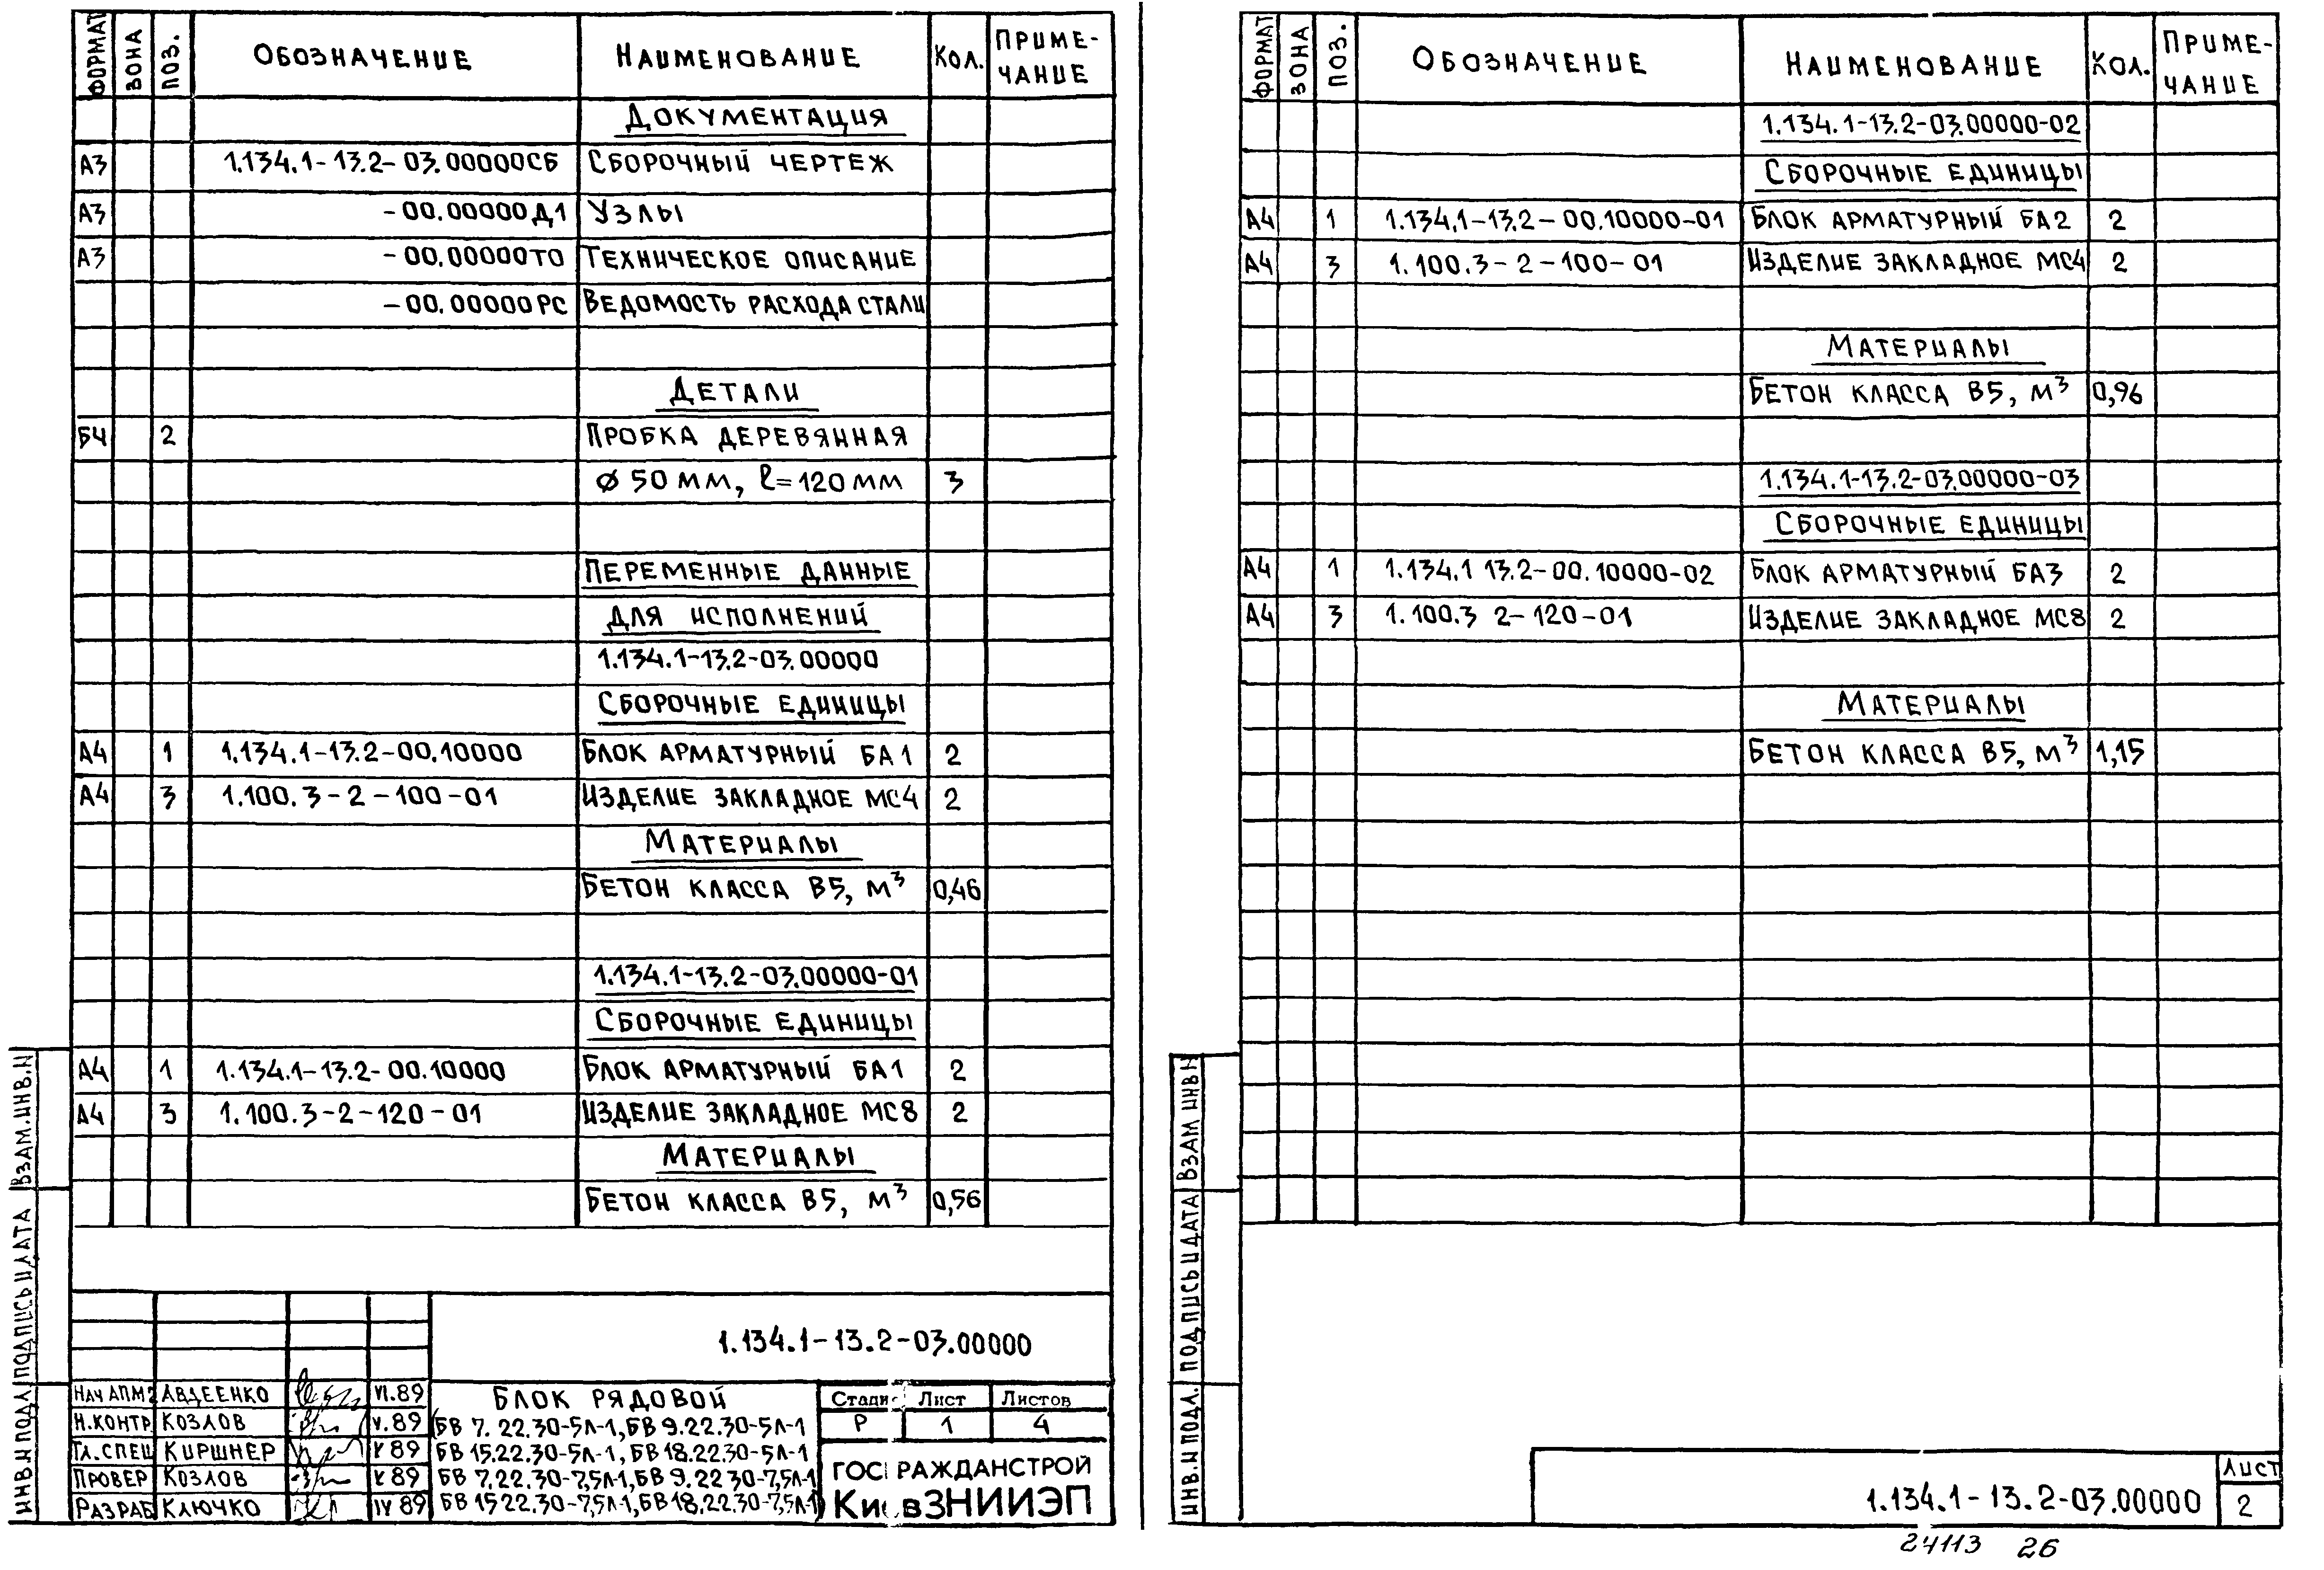 ФОРМАТ ЗОНА ПОЗ. ОБОЗНАЧЕНИЕ НАИМЕНОВАНИЕ КОЛ. ПРИМЕ-
ЧАНИЕ
ДОКУМЕНТАЦИЯ
А3 1.134.1-13.2-03.00000СБ СБОРОЧНЫЙ ЧЕРТЕЖ
А3 -00.00000Д1 УЗЛЫ
А3 -00.00000ТО ТЕХНИЧЕСКОЕ ОПИСАНИЕ
-00.00000РС ВЕДОМОСТЬ РАСХОДА СТАЛИ
ДЕТАЛИ
БЧ 2 ПРОБКА ДЕРЕВЯННАЯ
Ø 50 ММ, ℓ=120 ММ 3
ПЕРЕМЕННЫЕ ДАННЫЕ
ДЛЯ ИСПОЛНЕНИЙ
1.134.1-13.2-03.00000
СБОРОЧНЫЕ ЕДИНИЦЫ
А4 1 1.134.1-13.2-00.10000 БЛОК АРМАТУРНЫЙ БА1 2
А4 3 1.100.3-2-100-01 ИЗДЕЛИЕ ЗАКЛАДНОЕ МС4 2
МАТЕРИАЛЫ
БЕТОН КЛАССА В5, М³ 0,46
1.134.1-13.2-03.00000-01
СБОРОЧНЫЕ ЕДИНИЦЫ
А4 1 1.134.1-13.2-00.10000 БЛОК АРМАТУРНЫЙ БА1 2
А4 3 1.100.3-2-120-01 ИЗДЕЛИЕ ЗАКЛАДНОЕ МС8 2
МАТЕРИАЛЫ
БЕТОН КЛАССА В5, М³ 0,56
ИНВ.Н ПОДЛ ПОДПИСЬ И ДАТА ВЗАМ.ИНВ.Н
1.134.1-13.2-03.00000
НАЧ АПМ2 АВДЕЕНКО VI.89
Н.КОНТР КОЗЛОВ V.89
ГЛ.СПЕЦ КИРШНЕР V 89
ПРОВЕР КОЗЛОВ V 89
РАЗРАБ КЛЮЧКО IV 89
БЛОК РЯДОВОЙ
(БВ 7.22.30-5Л-1, БВ 9.22.30-5Л-1
БВ 15.22.30-5Л-1, БВ 18.22.30-5Л-1
БВ 7.22.30-7,5Л-1, БВ 9.22 30-7,5Л-1
БВ 15 22.30-7,5Л-1, БВ 18.22.30-7,5Л-1)
Стади Лист Листов
Р 1 4
ГОС РАЖДАНСТРОЙ
Ки вЗНИИЭП
ФОРМАТ ЗОНА ПОЗ. ОБОЗНАЧЕНИЕ НАИМЕНОВАНИЕ КОЛ. ПРИМЕ-
ЧАНИЕ
1.134.1-13.2-03.00000-02
СБОРОЧНЫЕ ЕДИНИЦЫ
А4 1 1.134.1-13.2-00.10000-01 БЛОК АРМАТУРНЫЙ БА2 2
А4 3 1.100.3-2-100-01 ИЗДЕЛИЕ ЗАКЛАДНОЕ МС4 2
МАТЕРИАЛЫ
БЕТОН КЛАССА В5, М³ 0,96
1.134.1-13.2-03.00000-03
СБОРОЧНЫЕ ЕДИНИЦЫ
А4 1 1.134.1 13.2-00.10000-02 БЛОК АРМАТУРНЫЙ БА3 2
А4 3 1.100.3 2-120-01 ИЗДЕЛИЕ ЗАКЛАДНОЕ МС8 2
МАТЕРИАЛЫ
БЕТОН КЛАССА В5, М³ 1,15
ИНВ.Н ПОДЛ. ПОДПИСЬ И ДАТА ВЗАМ ИНВ Н
1.134.1-13.2-03.00000
ЛИСТ
2
24113 26